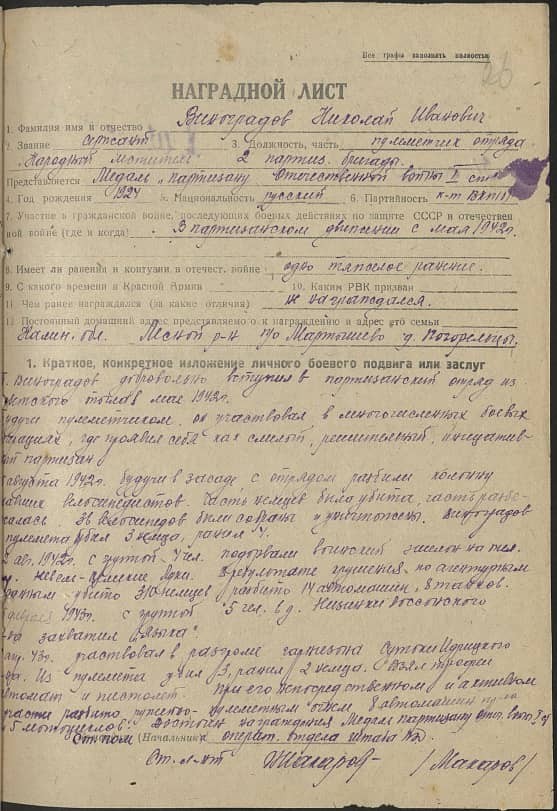 Все графы заполнять полностью
26
НАГРАДНОЙ ЛИСТ
1. Фамилия имя и отчество Виноградов Николай Иванович
2. Звание сержант 3. Должность, часть пулеметчик отряда
Народный мститель 2 партиз. бригада.
Представляется Медаль "партизану отечественной войны II
4. Год рождения 1924 5. Национальность русский 6. Партийность к-т ВКП(б)
7. Участие в гражданской войне, последующих боевых действиях по защите СССР и отечествен
ной войне (где и когда) В партизанском движении с мая 1942г.
8. Имеет ли ранения и контузии в отечест. войне одно тяжелое ранение.
9. С какого времени в Красной Армии 10. Каким РВК призван
11. Чем ранее награждался (за какие отличия) не награждался.
12. Постоянный домашний адрес представляемого к награждению и адрес его семьи
Калин. обл. Лесной р-н п/о Мартышево д. Погорельцы.
1. Краткое, конкретное изложение личного боевого подвига или заслуг
Виноградов добровольно вступил в партизанский отряд из
в мае 1942г.
будучи пулеметчиком, он участвовал в многочисленных боевых
где проявил себя как смелый, решительный,
партизан
августа 1942г. будучи в засаде с отрядом разбили колонну
велосипедистов. Часть немцев была убита, часть
36 велосипедов были собраны и уничтожены. Виноградов
пулемета убил 3 немца, ранил 4.
2 авг. 1942г. с группой 4 чел. подорвали воинский эшелон на жел.
Невель- Луки. В результате крушения, по агентурным
данным убито 310 немцев разбито 14 автомашин, 8 танков.
1943г. с группой 5 чел. в д.
захватил "языка".
43г. участвовал в разгроме гарнизона Сутоки Идрицкого
Из пулемета убил 3, ранил 2 немца. Взял трофеи
автомат и пистолет. При его непосредственном и активном
участии разбито ружейно-пулеметным огнем 8 автомашин
5 мотоциклов. Достоин награждения Медаль партизану отеч. войны
(Начальник) операт. отдела штаба
Ст. л-нт Макаров /Макаров/